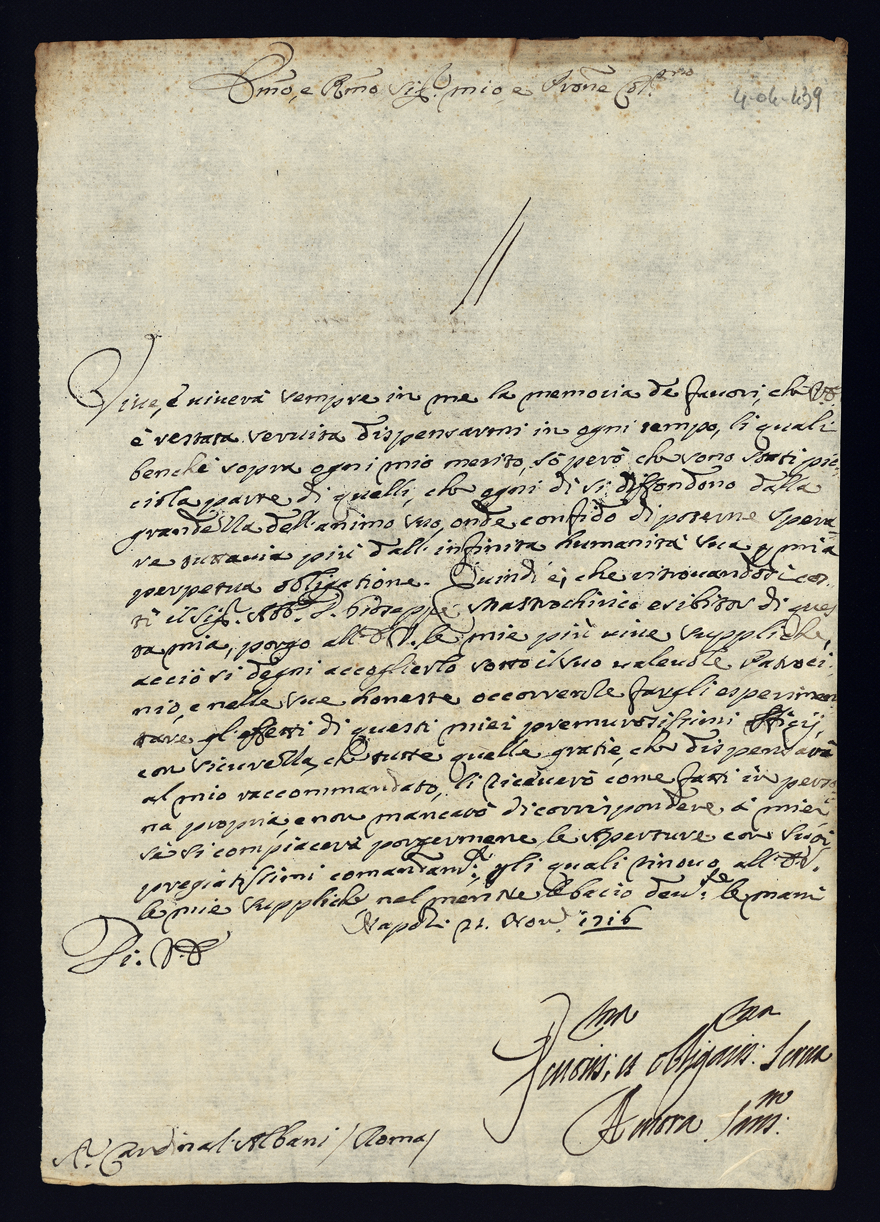 Em̃o, e Rm̃o Sig.r mio, e Prone Col.mo
4-04-439
Viue, è uiuerà sempre in me la memoria de fauori, che V.E.
è restata seruita dispensarmi in ogni tempo, li quali
benche sopra ogni mio merito, sò però che sono stati pic-
ciola parte di quelli, che ogni dì si diffondono dalla
grandezza dell'animo suo, onde confido di poterne spera-
re tuttauia più dall'infinita humanità sua p mia
perpetua obligatione. Quindi è, che ritrouandosi cos-
tì il Sig.r Abb.e D. Gioseppe Mastrochirico esibitor di ques-
ta mia, porgo all'E.V. le mie più uiue suppliche,
acciò si degni accoglierlo sotto il suo ualeuole Patroci-
nio, e nelle sue honeste occorrenze fargli esperimen-
tare gl'effetti di questi miei premurosissimi officij,
con sicurezza, che tutte quelle gratie, che dispensarà
al mio raccommandato, li riceuerò come fatti in perso-
na propria, e non mancarò di corrispondere à miei
sè si compiacerà porgermene le aperture con suoi
pregiatissimi comandam.ti, p li quali rinouo all'E.V.
le mie suppliche nel mentre le bacio deu.te le mani
Napoli 21. Nou.e 1716
Di. V.E.
Deuotis: et obligatis: Serua
Aurora San:
A.r Cardinal Albani /Roma/